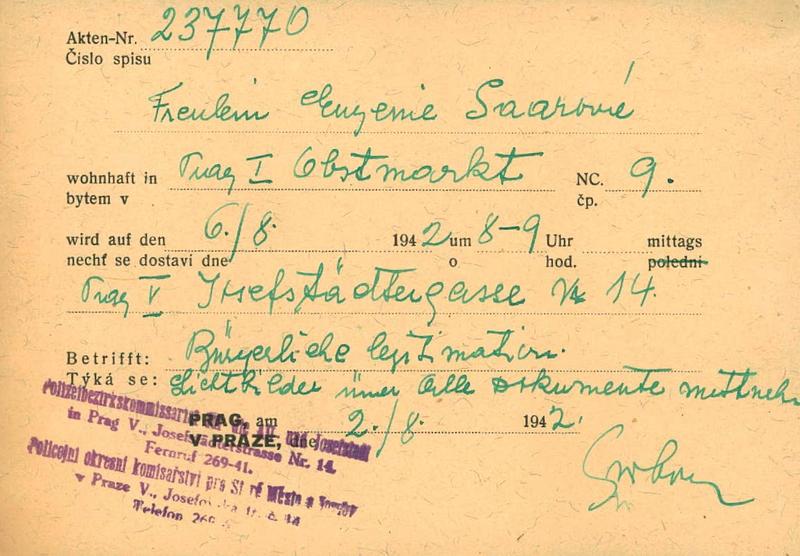 Akten-Nr. 237770
Číslo spisu
Freulein Eugenie Saarové
wohnhaft in Prag I Obstmarkt NC. 9.
bytem v čp.
wird auf den 6./8. 1942 um 8-9 Uhr mittags
nechť se dostaví dne o hod. poledni
Prag V Josefstädtergasse Nr 14.
Betrifft: Bürgerliche legitimation.
Týká se: Lichtbilder alle Dokumente
PRAG, am 2./8. 1942.
V PRAZE, dne
Polizeibezirkskommissariat Josefstadt
in Prag V., Josefstädterstrasse Nr. 14.
Fernruf 269-41.
Policejní okresní komisařství pro Staré Město a Josefov
v Praze V., Josefovská tř. č. 14
Telefon